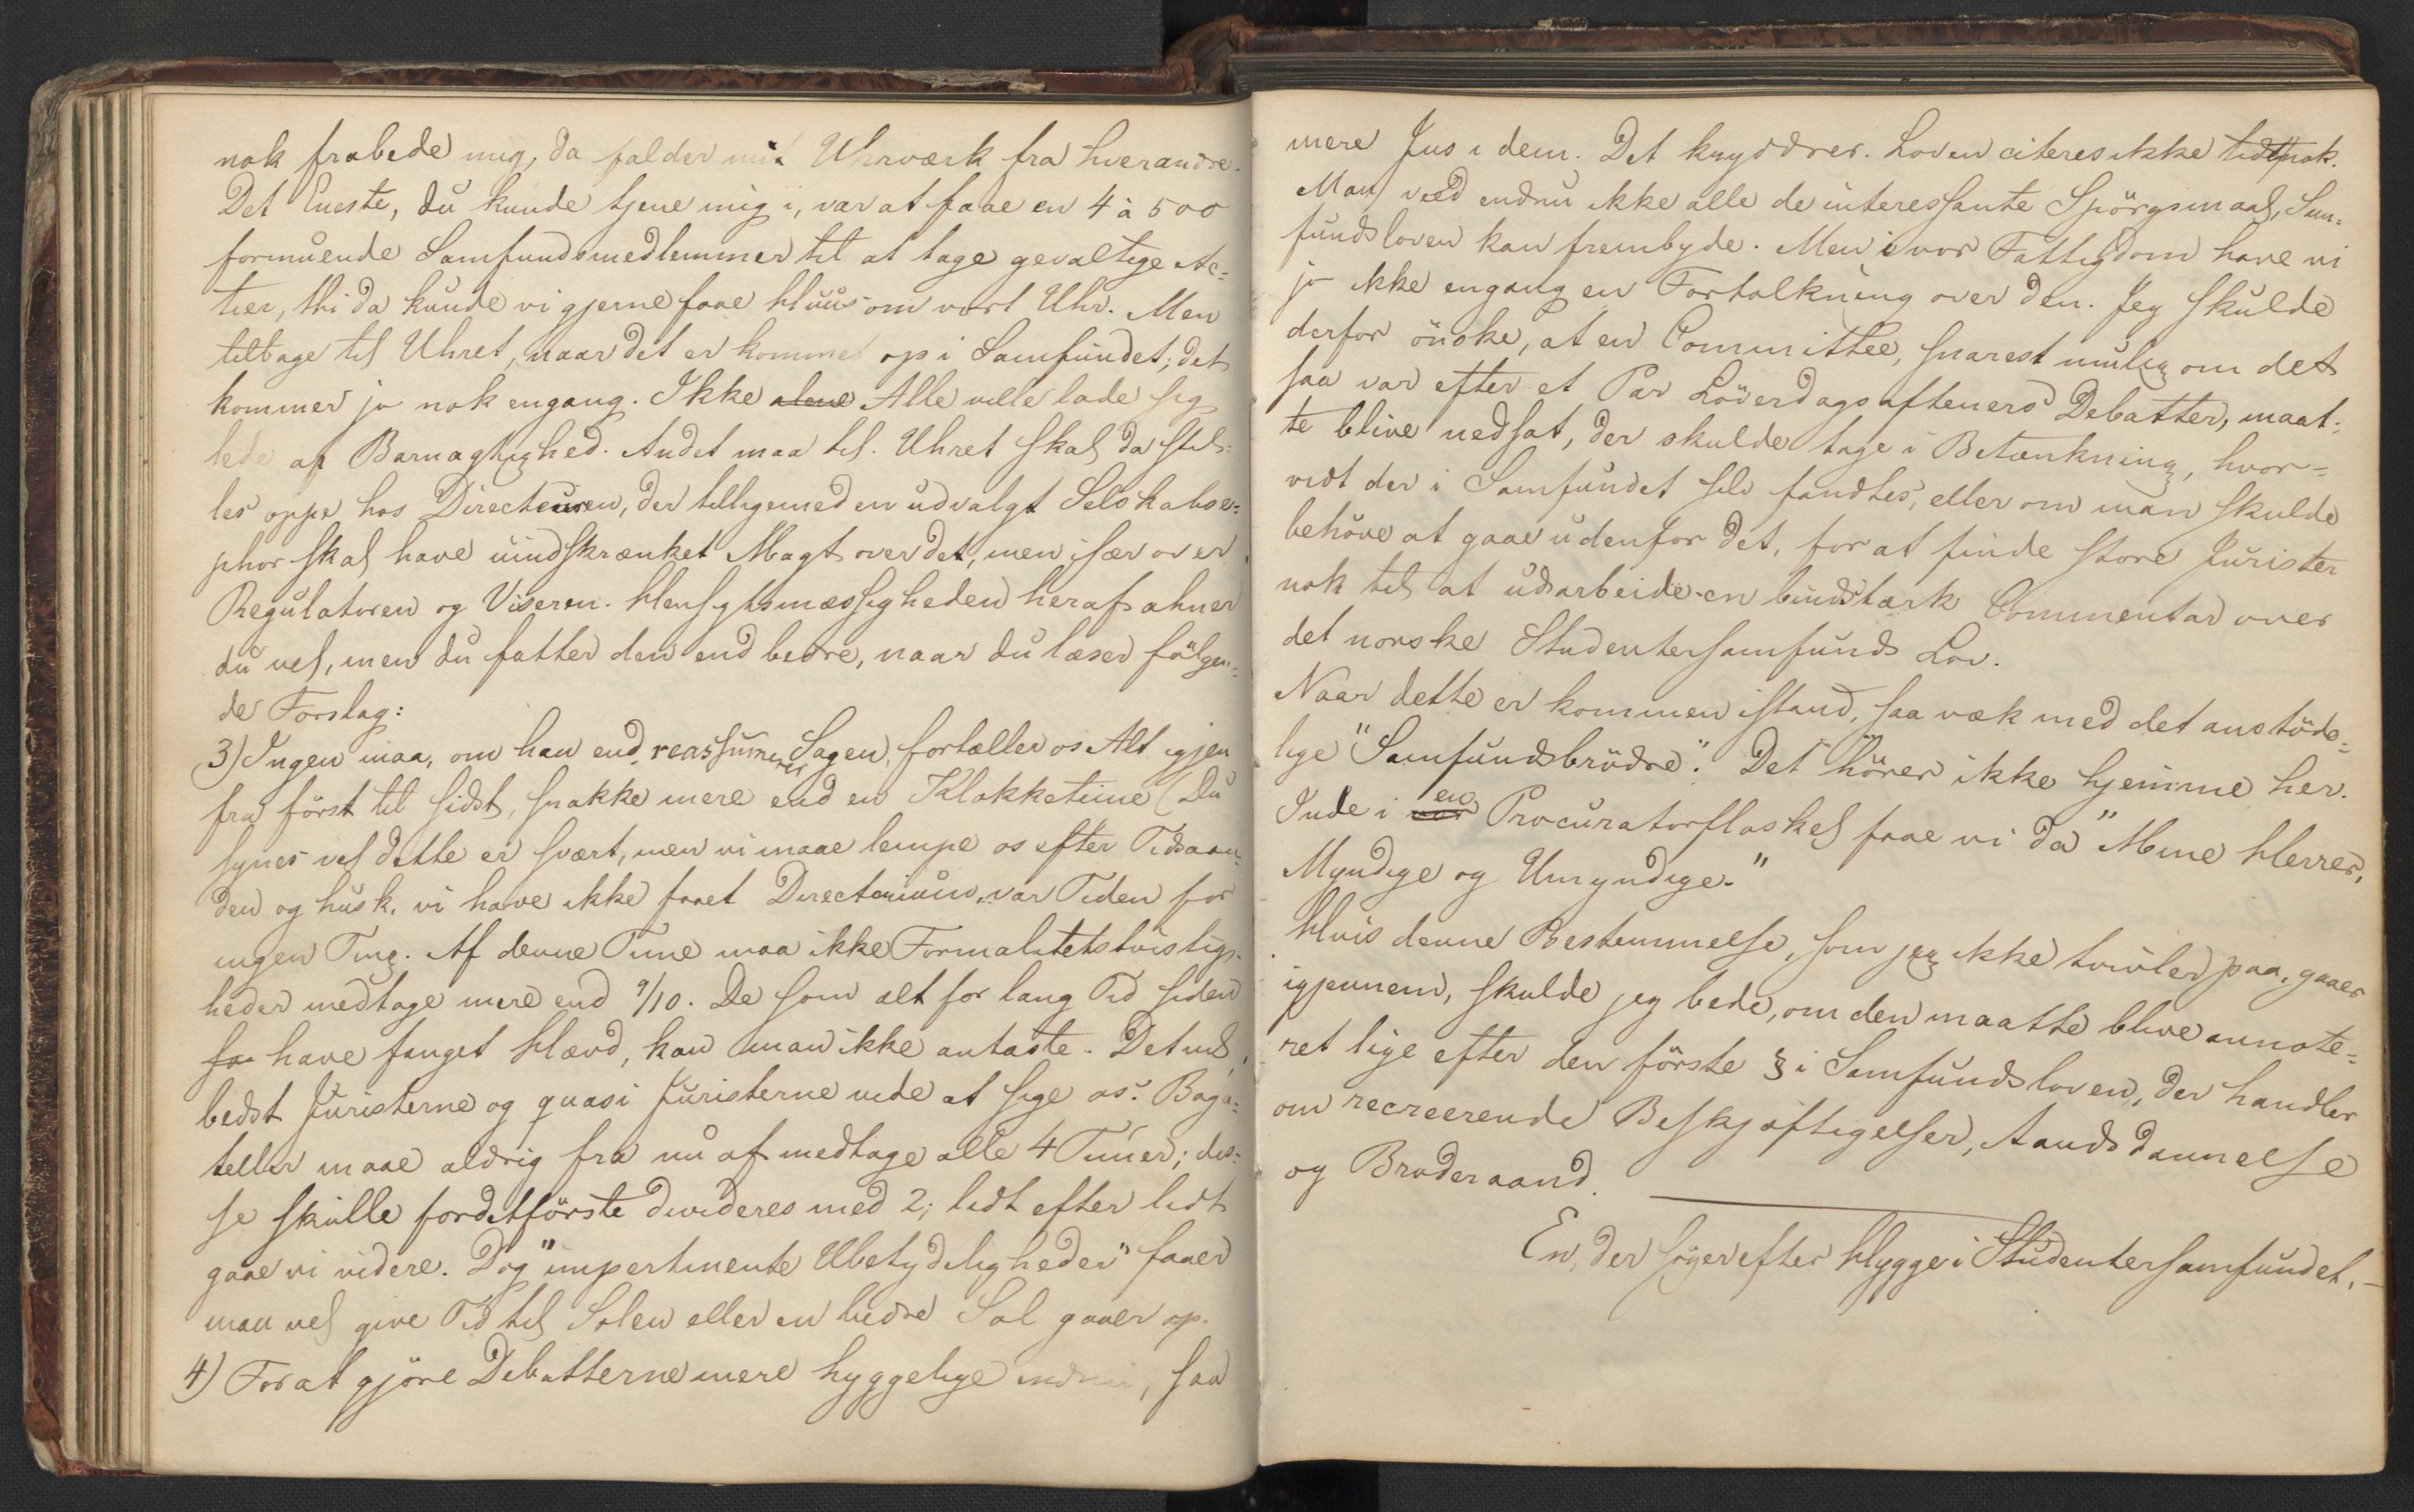 nok frabede mig, da falder mit Uhrværk fra hverandre.
Det Eneste, du kunde tjene mig i, var at faae en 4 à 500
formuende Samfundsmedlemmer til at tage gevaltige Ac-
tier, thi da kunde vi gjerne faae Huus om vort Uhr. Men
tilbage til Uhret, naar det er kommet op i Samfundet; det
kommer jo nok engang. Ikke alene Alle ville lade sig
lede af Barnagtighed. Andet maa til. Uhret skal da stil-
les oppe hos Directeuren, der tilligemed en udvalgt Selskabse-
phor skal have uindskrænket Magt over det, men især over
Regulatoren og Viseren. Hensigtsmæssigheden heraf ahner
du vel, men du fatter den end bedre, naar du læser følgen-
de Forslag:
3) Ingen maa, om han end reassumerer Sagen, fortæller os Alt igjen
fra först til sidst, snakke mere end en Klokketime (Du
synes vel dette er svært, men vi maae lempe os efter Tidsaan-
den og husk, vi have ikke faaet Directorium, var Tiden for
ingen Ting. Af denne Time maa ikke Formalitetstvistig-
heder medtage mere end 9/10. De som alt for lang Tid siden
fa have fanget Hævd, kan man ikke antaste. Det vil
bedst Juristerne og quasi Juristerne vide at sige os. Baga-
teller maae aldrig fra nu af medtage alle 4 Timer; dis-
se skulle fordetförste divideres med 2; lidt efter lidt
gaae vi videre. Dog "impertinente Ubetydeligheder" faaer
man vel give Tid til Solen eller en bedre Sol gaaer op.
4) For at gjöre Debatterne mere hyggelige endnu, saa
mere Jus i dem. Det kryddrer. Loven citeres ikke tidtnok.
Man veed endnu ikke alle de interessante Spörgsmaal, Sam-
fundsloven kan frembyde. Men i vor Fattigdom have vi
jo ikke engang en Fortolkning over den. Jeg skulde
derfor önske, at en Committee, snarest mulig om det
saa var efter et Par Löverdagsafteners Debatter, maat-
te blive nedsat, der skulde tage i Betænkning, hvor-
vidt der i Samfundet selv fandtes, eller om man skulde
behöve at gaae udenfor det, for at finde store Jurister
nok til at udarbeide en bindstærk Commentar over
det norske Studentersamfunds Lov.
Naar dette er kommen istand, saa væk med det anstöde-
lige "Samfundsbrödre". Det hörer ikke hjemme her.
Inde i vor en Procuratorflaskel faae vi da "Mine Herrer,
Myndige og Umyndige."
Hvis denne Bestemmelse, som jeg ikke tvivler paa, gaaer
igjennem, skulde jeg bede, om den maatte blive annote-
ret lige efter den förste § i Samfundsloven, der handler
om recreerende Beskjæftigelser, Aandsdannelse
og Broderaand.
En, der söger efter Hygge i Studentersamfundet.